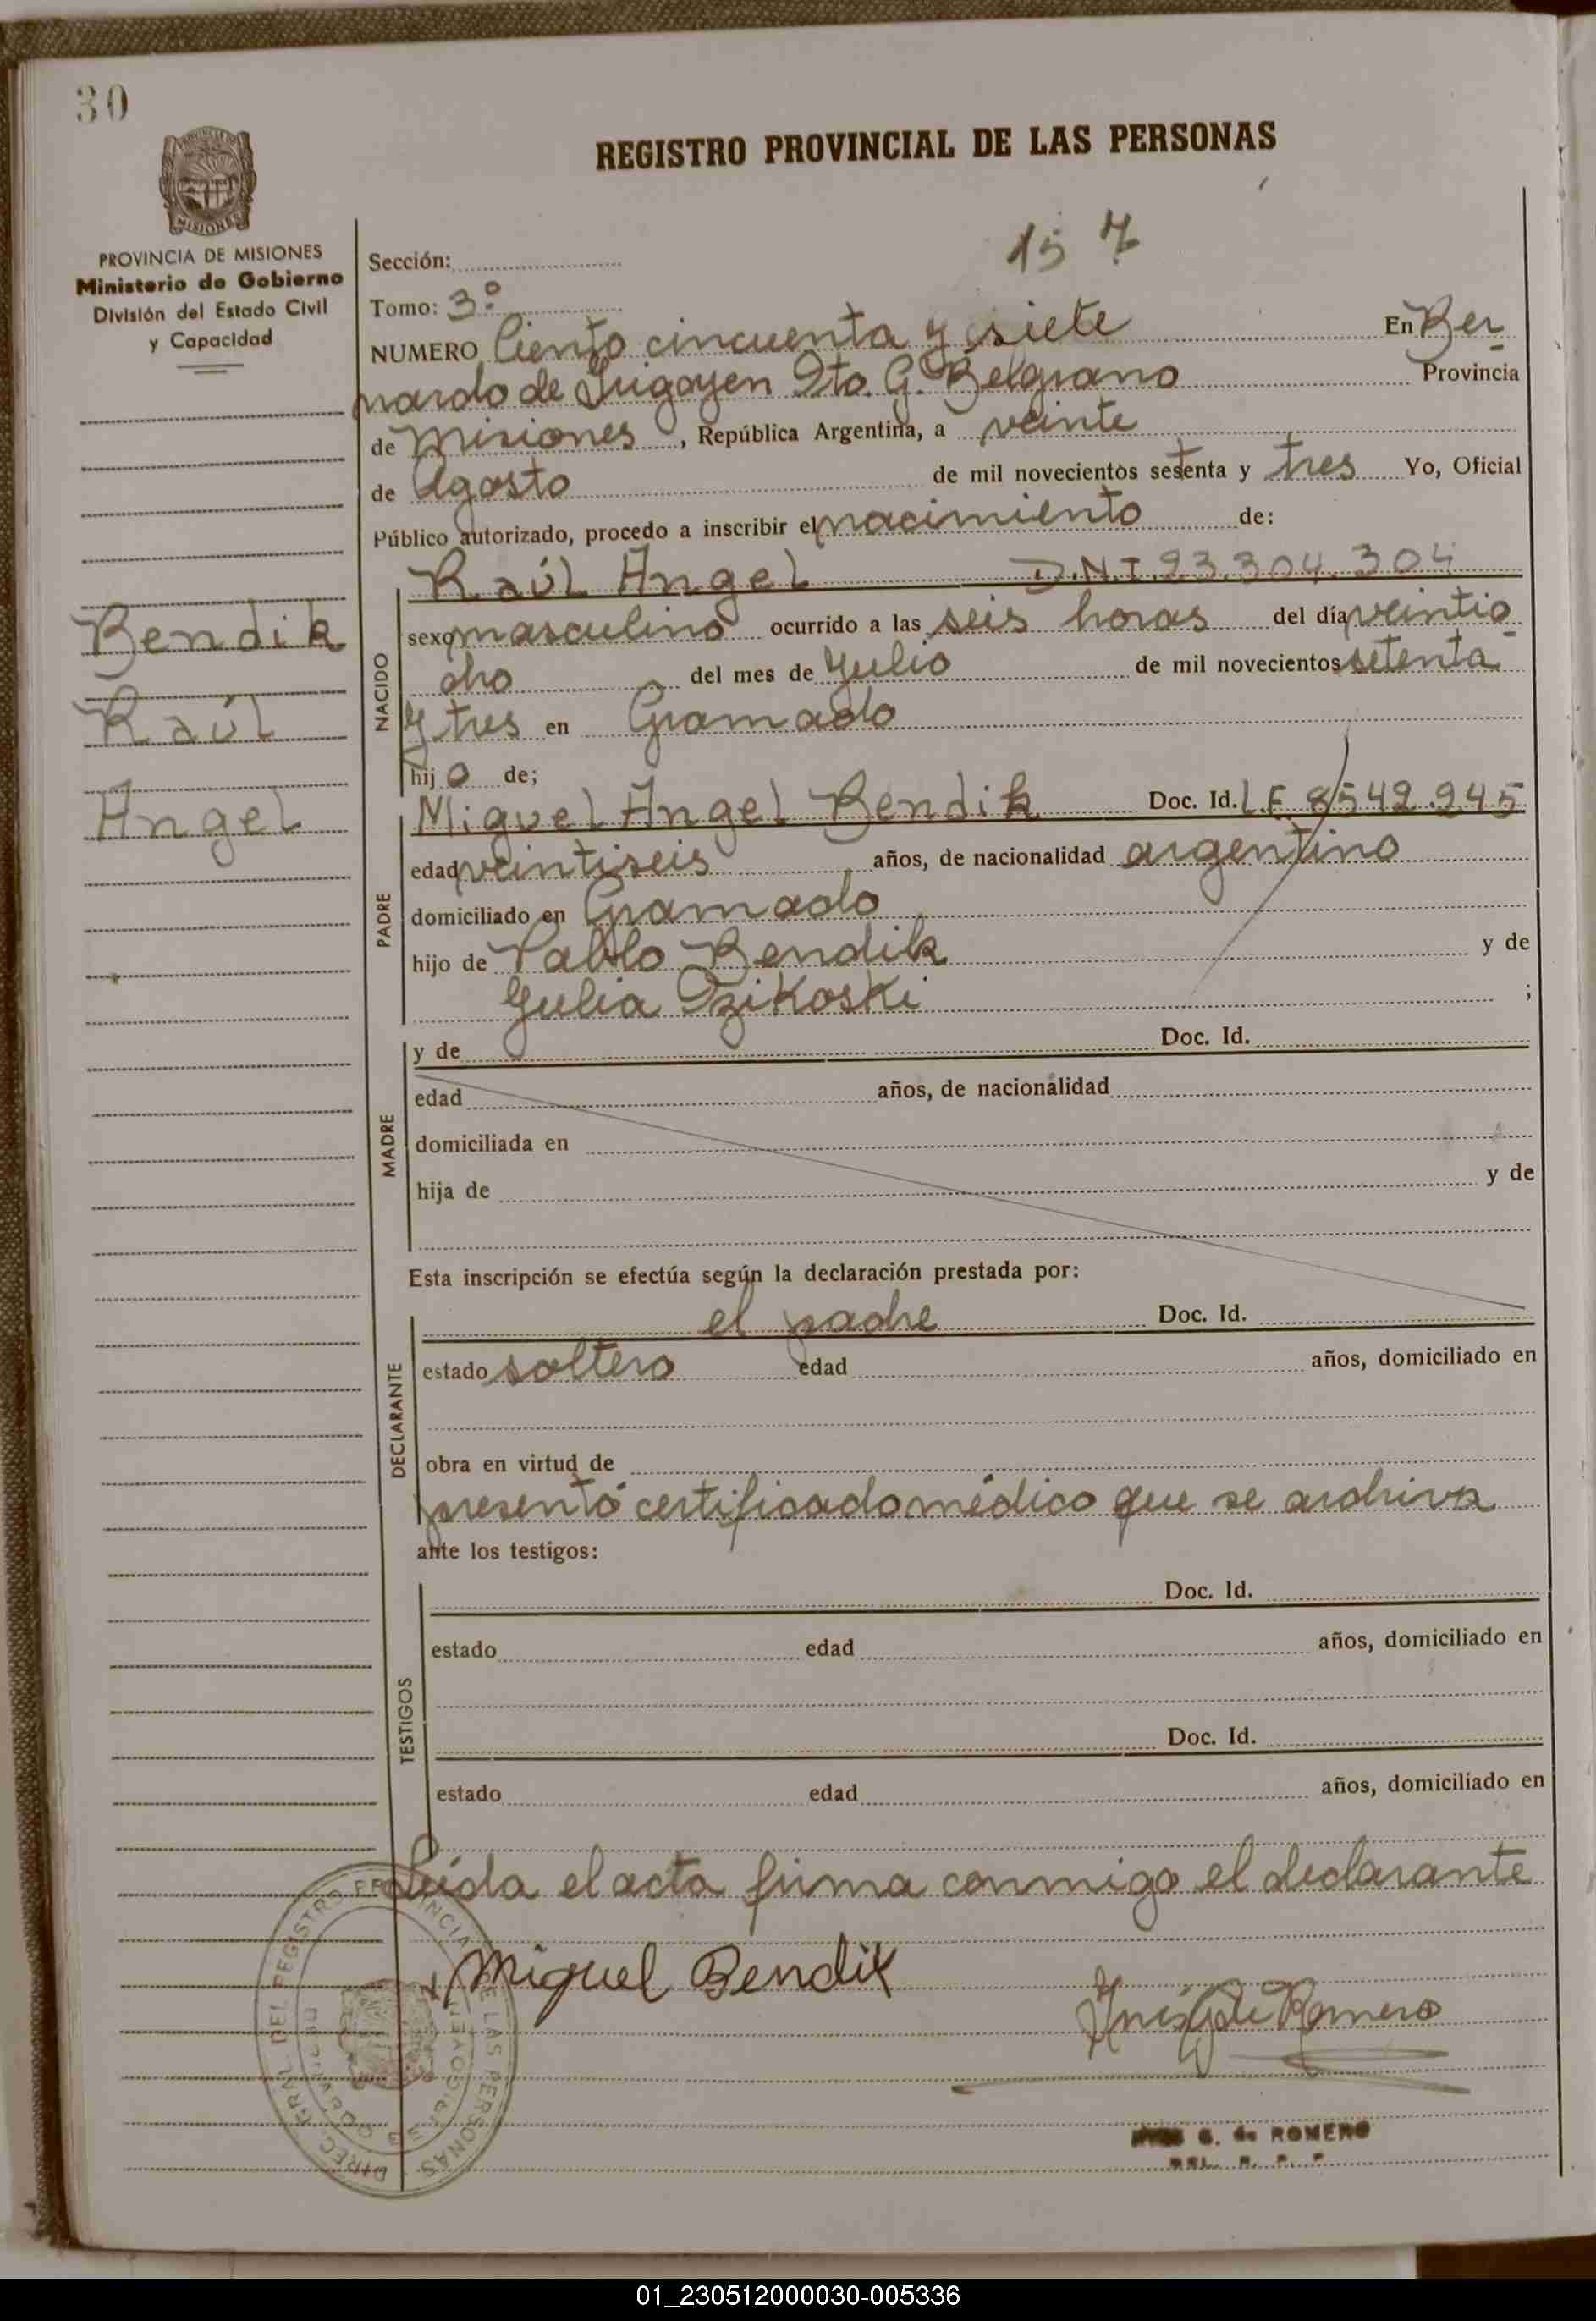 30
REGISTRO PROVINCIAL DE LAS PERSONAS
MISIONES
PROVINCIA DE MISIONES
Ministerio de Gobierno
División del Estado Civil
y Capacidad
157
Sección:
Tomo: 3º
NUMERO Ciento cincuenta y siete En Ber
nardo de Irigoyen Dto. G. Belgrano Provincia
de Misiones, República Argentina, a veinte
de Agosto de mil novecientos setenta y tres Yo, Oficial
Público autorizado, procedo a inscribir el nacimiento de:
Raúl Angel D.N.I. 23.304.304
Bendik
Raúl
Angel
NACIDO
sexo masculino ocurrido a las seis horas del día veintio
cho del mes de Julio de mil novecientos setenta
y tres en Gramado
hijo de;
PADRE
Miguel Angel Bendik Doc. Id. L.E 8542.945
edad veintiseis años, de nacionalidad argentino
domiciliado en Gramado
hijo de Pablo Bendik y de
Julia Ozikoski ;
MADRE
y de Doc. Id.
edad años, de nacionalidad
domiciliada en
hija de y de
Esta inscripción se efectúa según la declaración prestada por:
DECLARANTE
el padre Doc. Id.
estado soltero edad años, domiciliado en
obra en virtud de
presentó certificado médico que se archiva
ante los testigos:
TESTIGOS
Doc. Id.
estado edad años, domiciliado en
Doc. Id.
estado edad años, domiciliado en
Leída el acta firma conmigo el declarante
Miguel Bendik
Inés G de Romero
G. de ROMERO
DIREC. GRAL. DEL REGISTRO PROVINCIAL DE LAS PERSONAS
01_230512000030-005336